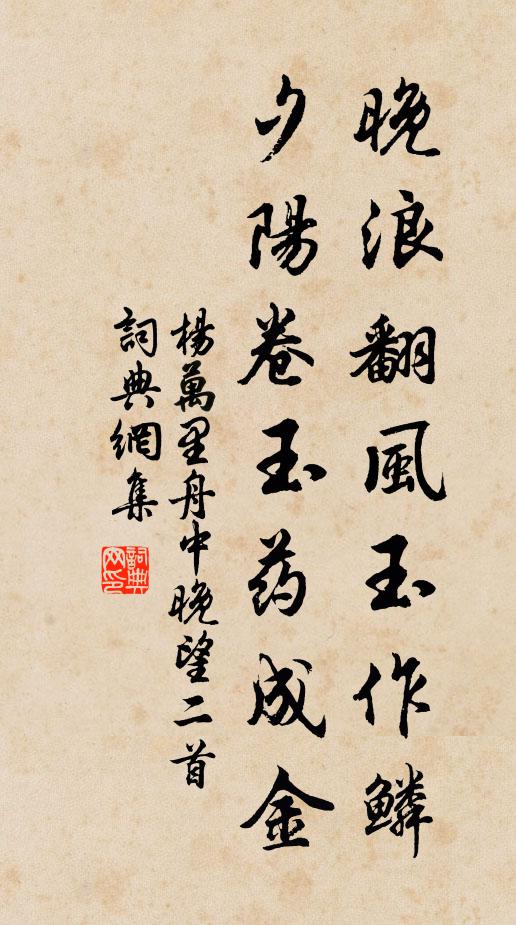 晚浪翻風玉作鱗
夕陽卷玉药成金
楊萬里舟中晚望二首
詞典網集
詞典網印